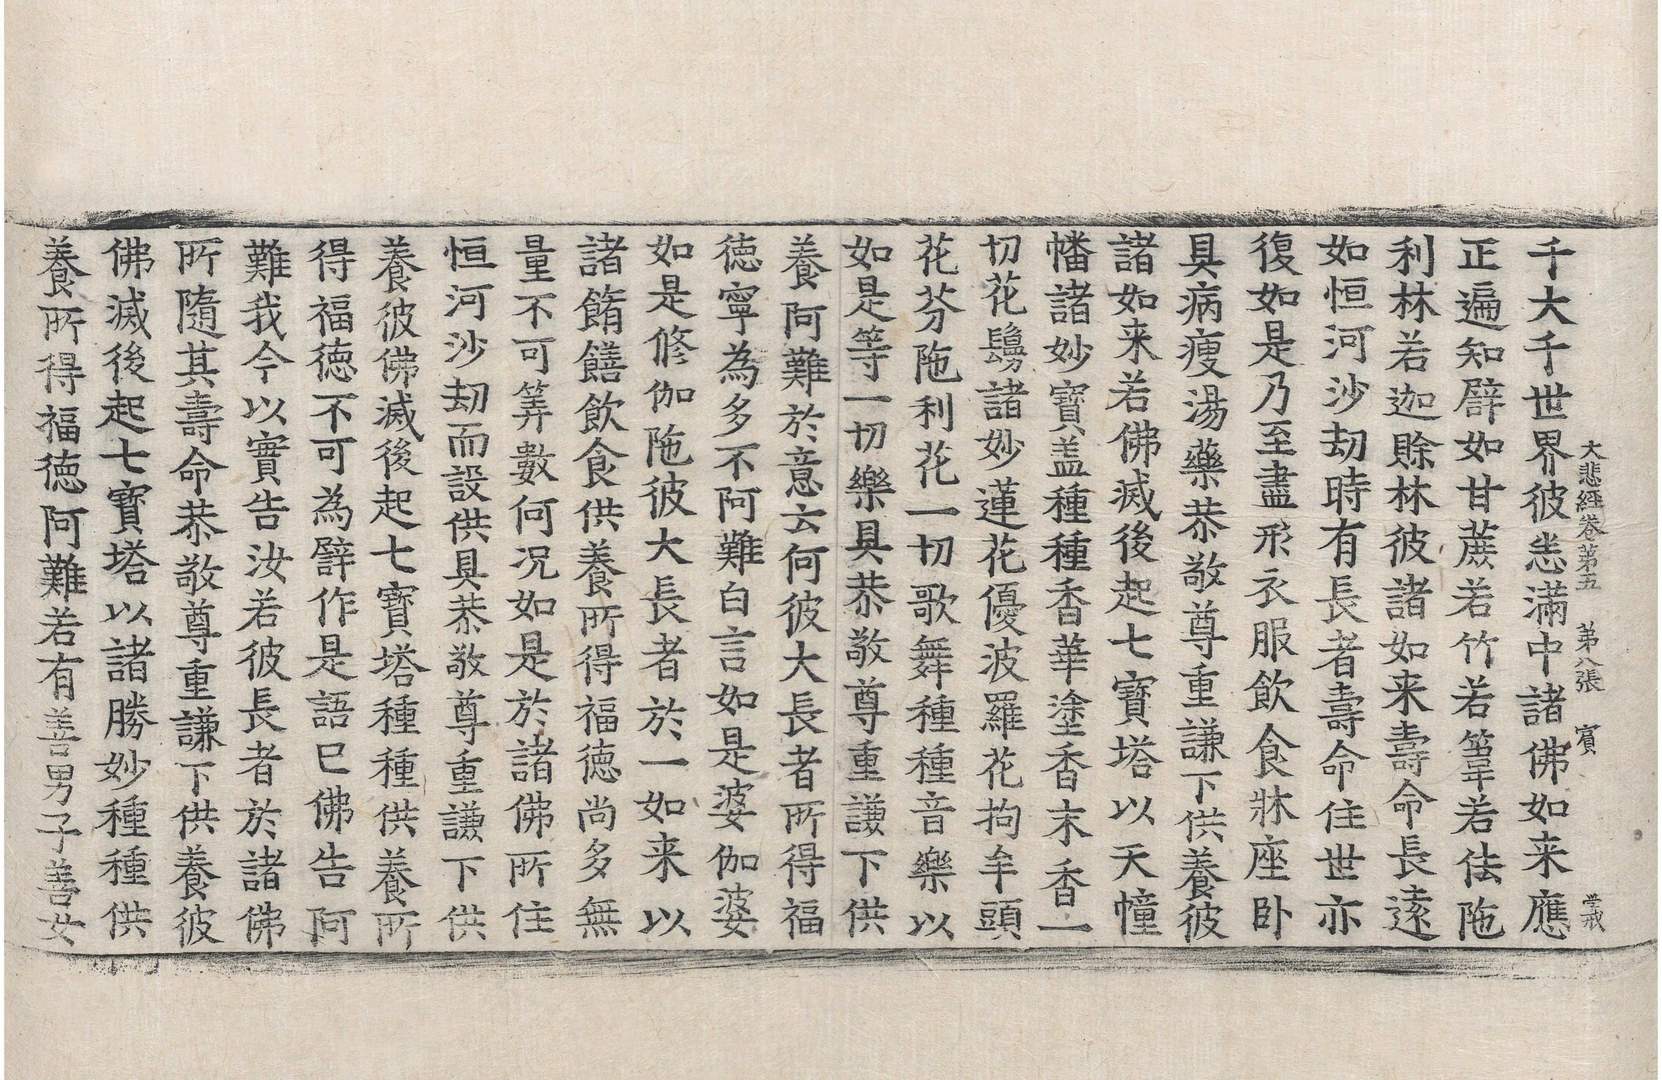 大悲經卷第五 第八張 賓
千大千世界彼悉滿中諸佛如来應
正遍知譬如甘蔗若竹若葦若佉陁
利林若迦賖林彼諸如来壽命長遠
如恒河沙刧時有長者壽命住世亦
復如是乃至盡形衣服飲食牀座卧
具病瘦湯藥恭敬尊重謙下供養彼
諸如来若佛滅後起七寶塔以天幢
幡諸妙寶盖種種香華塗香末香一
切花鬘諸妙蓮花優波羅花拘牟頭
花芬陁利花一切歌舞種種音樂以
如是等一切樂具恭敬尊重謙下供
養阿難於意云何彼大長者所得福
徳寧為多不阿難白言如是婆伽婆
如是修伽陁彼大長者於一如来以
諸餚饍飲食供養所得福徳尚多無
量不可筭數何况如是於諸佛所住
恒河沙刧而設供具恭敬尊重謙下供
養彼佛滅後起七寶塔種種供養所
得福徳不可為譬作是語已佛告阿
難我今以實告汝若彼長者於諸佛
所隨其壽命恭敬尊重謙下供養彼
佛滅後起七寶塔以諸勝妙種種供
養所得福徳阿難若有善男子善女